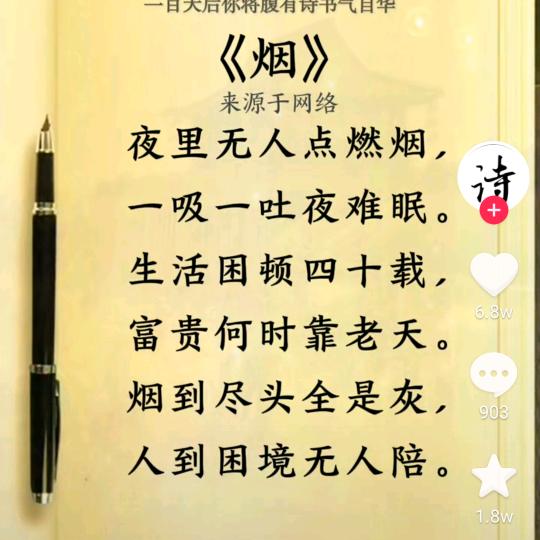 一百天后你将腹有诗书气自华
《烟》
来源于网络
夜里无人点燃烟，
一吸一吐夜难眠。
生活困顿四十载，
富贵何时靠老天。
烟到尽头全是灰，
人到困境无人陪。
诗
6.8w
903
1.8w